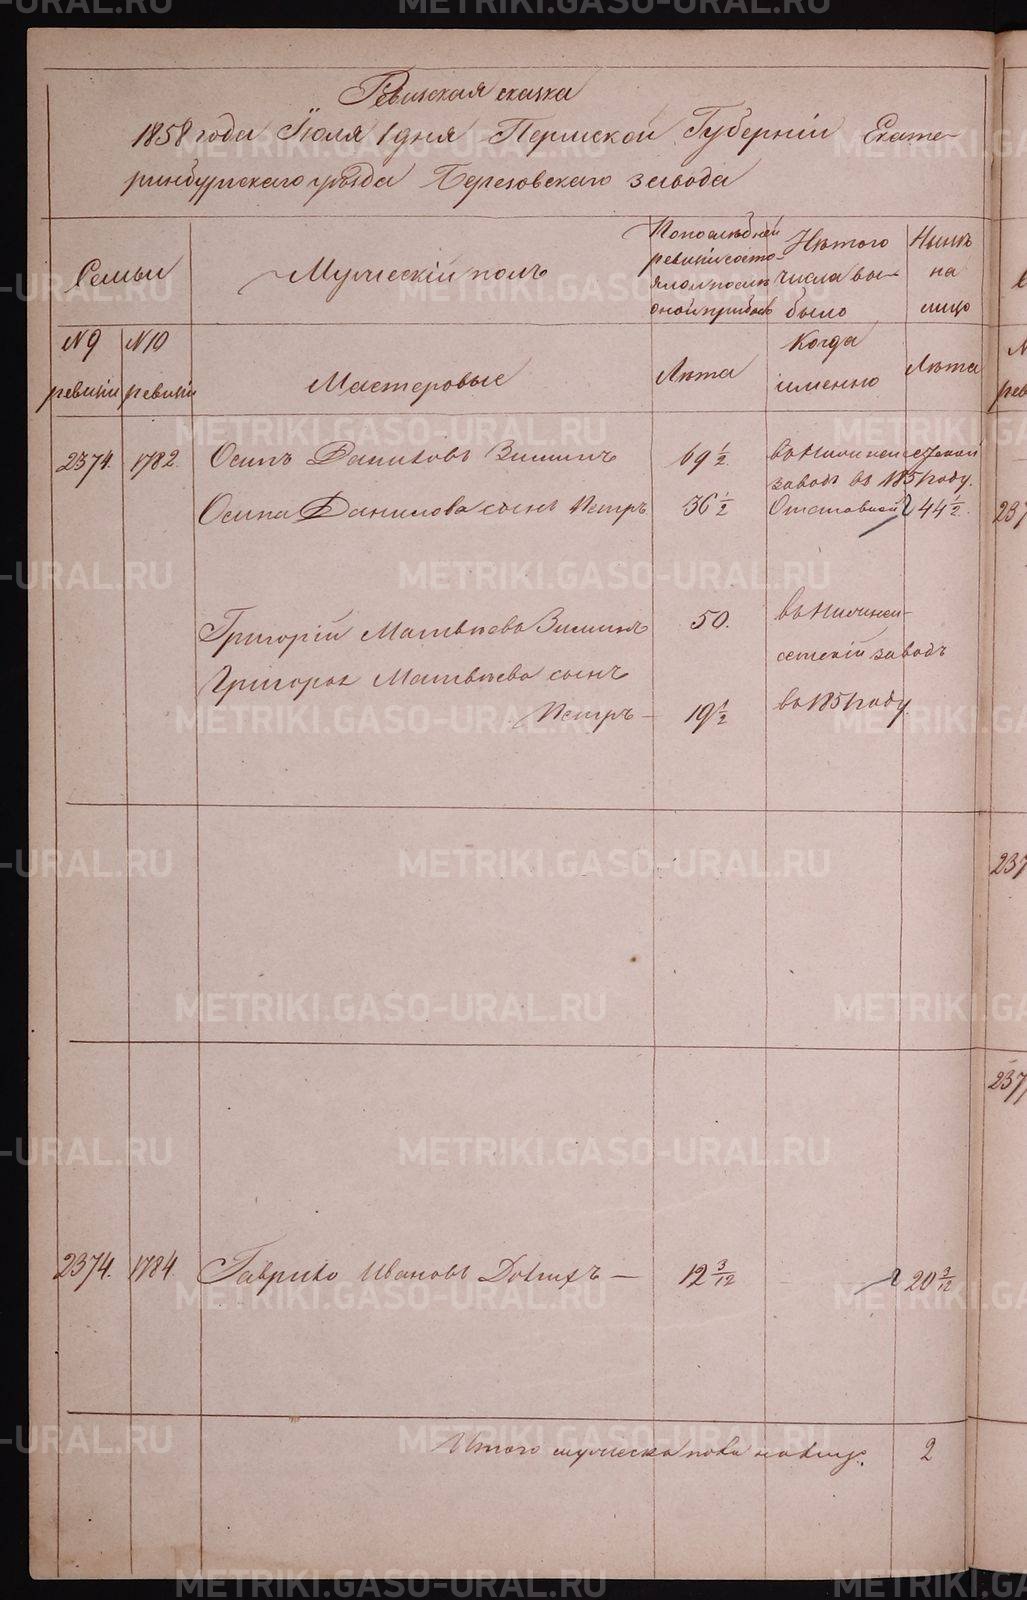 Ревизская сказка
1858 года Іюля 1 дня Пермской Губерніи Екате-
ринбургскаго уѣзда Березовскаго завода
Семьи
Мужескій полъ
По послѣдней
ревизіи состо-
яло и послѣ
оной прибыло
Изъ того
числа вы-
было
Нынѣ
на
лицо
№ 9
ревизіи
№ 10
ревизіи
Мастеровые
Лѣта
Когда
именно
Лѣта
2374. 1782. Осипъ Даниловъ Зиминъ 69 1/2 въ Нижнеисетской
заводъ въ 1851 году.
Осипа Данилова сынъ Петръ 36 1/2 Отставной 44 1/2
Григорій Матвѣевъ Зиминъ 50. въ Нижнеи-
сетскій заводъ
Григорья Матвѣева сынъ
Петръ — 19 1/2 въ 1851 году.
2374. 1784. Гаврило Ивановъ — 12 3/12 20 3/12
Итого мужеска пола на лицо. 2
237
237
237
METRIKI.GASO-URAL.RU